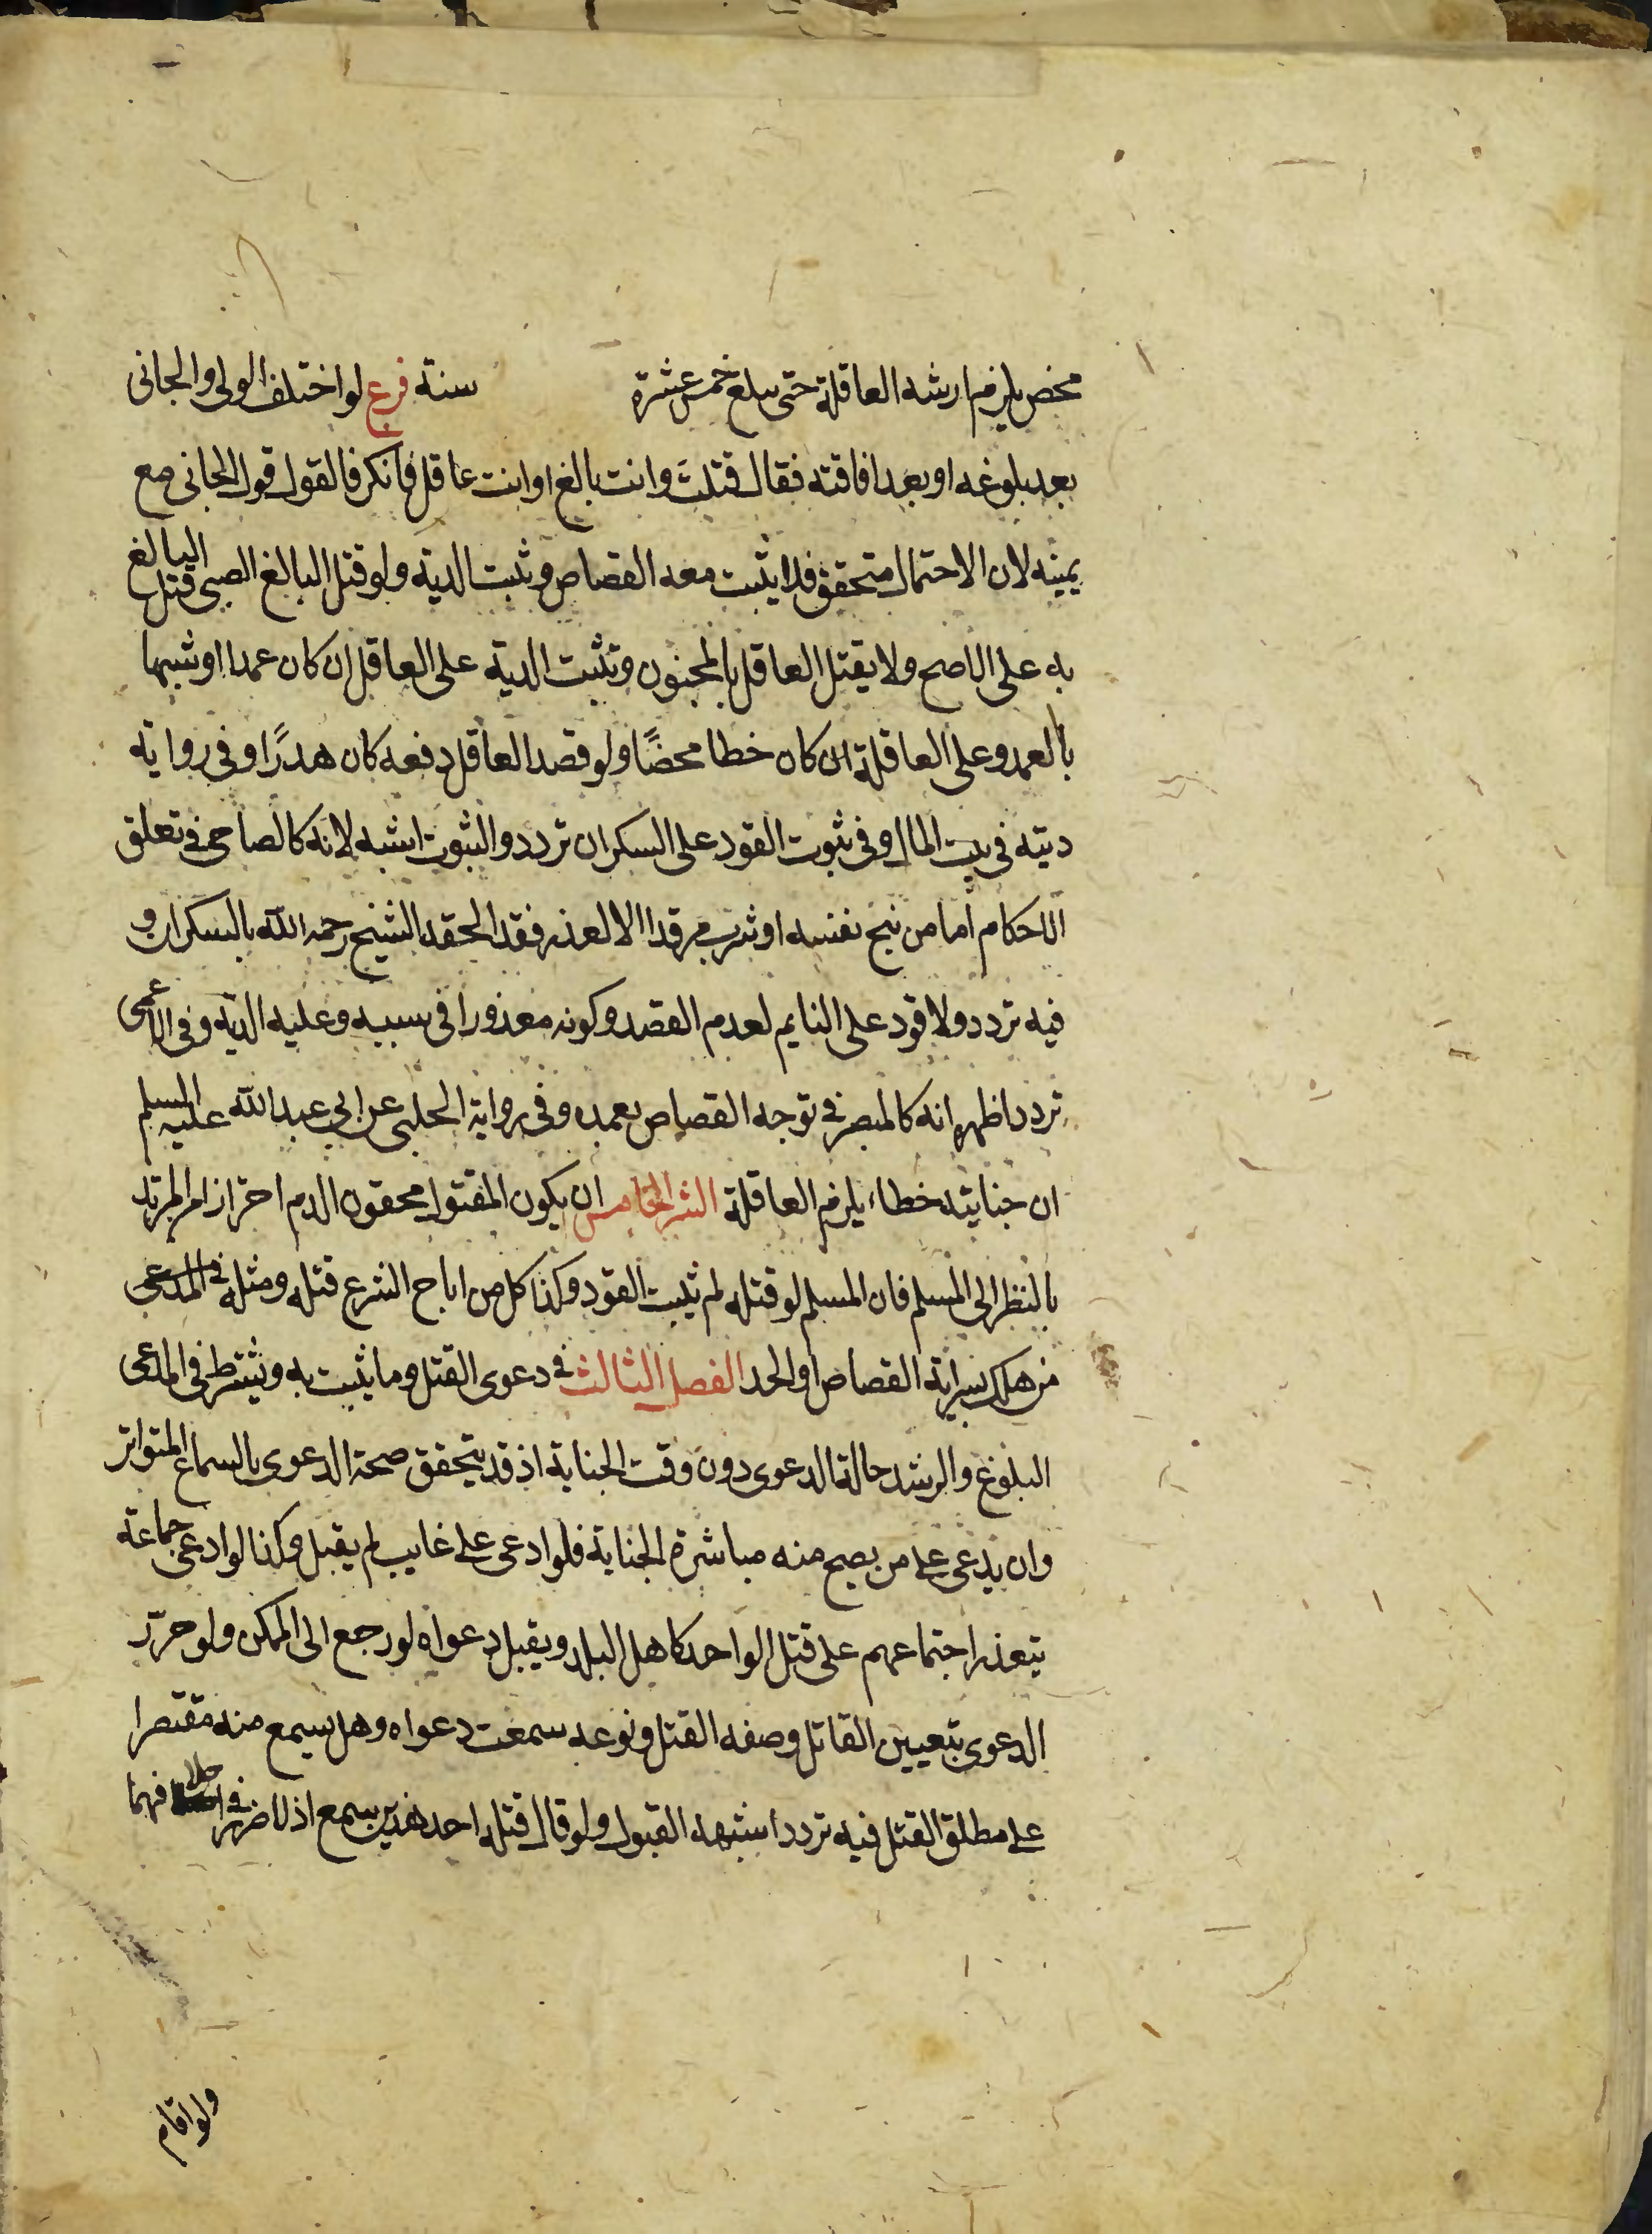 محض يلزم ارشه العاقلة حتى يبلغ خمس عشرة سنة فرع لو اختلف الولى والجانى
بعد بلوغه او بعد افاقته فقال قتلتَ وانت بالغ او انت عاقل فانكر فالقول قول الجانى مع
يمينه لان الاحتمال متحقق فلا يثبت معه القصاص ويثبت الدية ولو قتل البالغ الصبى قتل البالغ
به على الاصح ولا يقتل العاقل بالمجنون وتثبت الدية على العاقل ان كان عمدا او شبيها
بالعمد وعلى العاقلة ان كان خطا محضًا ولو قصد العاقل دفعه كان هدرًا وفى رواية
ديته فى بيت المال وفى ثبوت القود على السكران تردد والثبوت اشبه لانه كالصاحى فى تعلق
الاحكام اما من بنج نفسه او شرب مرقدا الا لعذر فقد الحقه الشيخ رحمه الله بالسكران و
فيه تردد ولا قود على النايم لعدم القصد وكونه معذورا فى سببه وعليه الدية وفى الاعمى
تردد اظهره انه كالمبصر فى توجه القصاص بعمده وفى رواية الحلبى عن ابي عبد الله عليه السلم
ان جنايته خطاء يلزم العاقلة الشرط الخامس ان يكون المقتول محقون الدم احترازا من المرتد
بالنظر الى المسلم فان المسلم لو قتله لم يثبت القود وكذا كل من اباح الشرع قتله ومثله فى المدعى
من هلك بسراية القصاص او الحد الفصل الثالث فى دعوى القتل وما يثبت به ويشترط فى المدعى
البلوغ والرشد حالة الدعوى دون وقت الجناية اذ قد يتحقق صحة الدعوى بالسماع المتواتر
وان يدعى على من يصح منه مباشرة الجناية فلو ادعى على غايب لم يقبل وكذا لو ادعى جماعة
يتعذر اجتماعهم على قتل الواحد كاهل البلد ويقبل دعواه لو رجع الى الممكن ولو حرّر
الدعوى بتعيين القاتل وصفه القتل ونوعه سمعت دعواه وهل يسمع منه مقتصرا
على مطلق القتل فيه تردد اشبهه القبول ولو قال قتله احد هذين سمع اذ لا ضرر فى احلافهما
ولو اقام